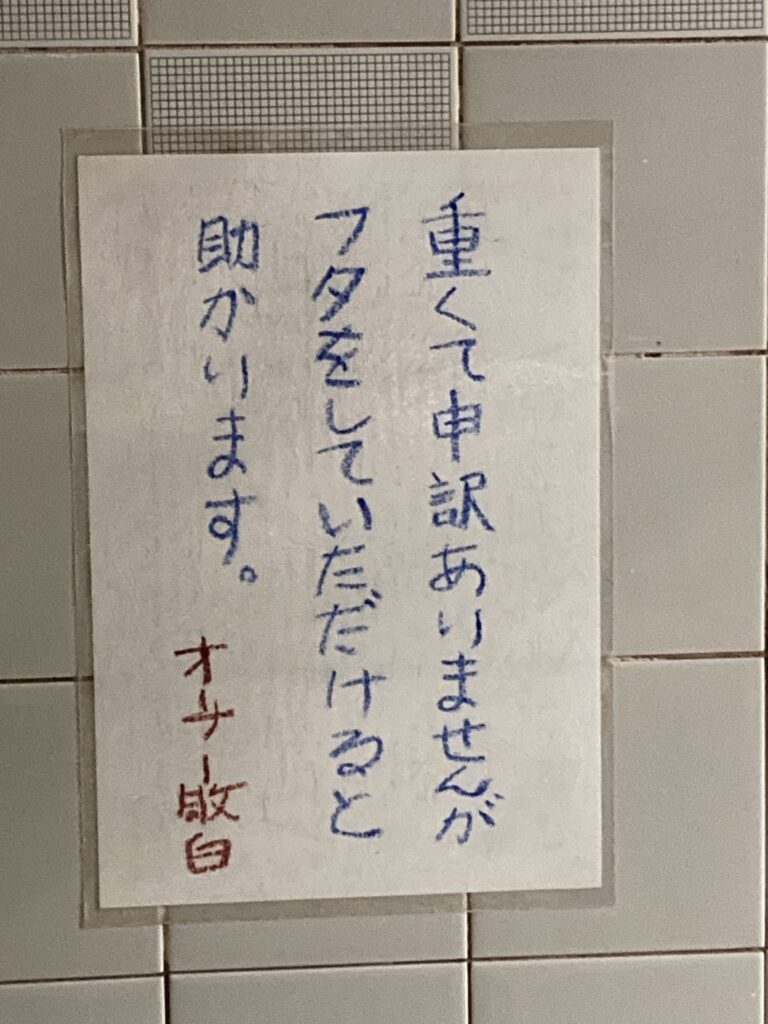 重くて申訳ありませんが
フタをしていただけると
助かります。
オーナー敗白